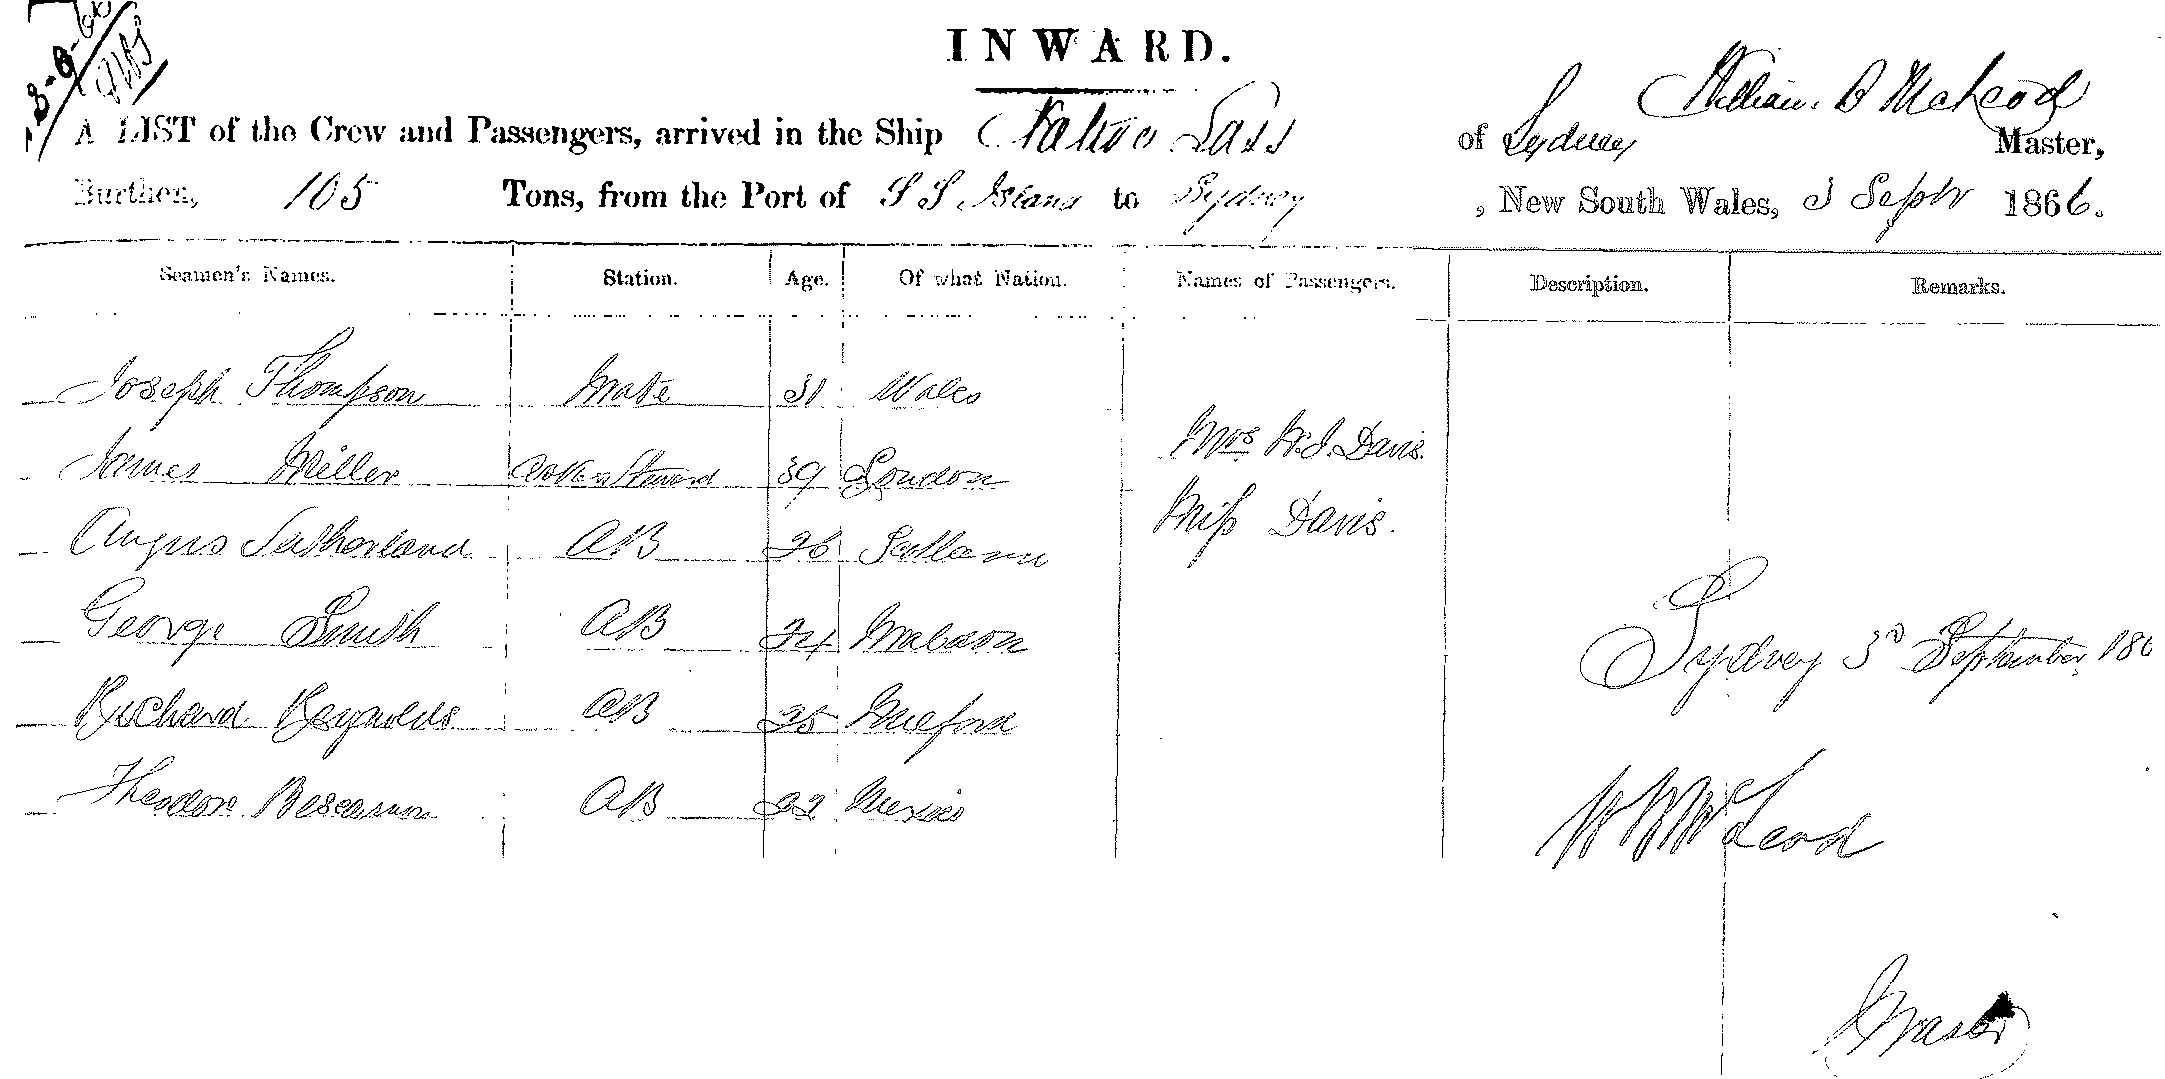 INWARD.
William. B McLeod
A LIST of the Crew and Passengers, arrived in the Ship Lass of Sydney Master,
Burthen, 105 Tons, from the Port of S S Island to Sydney , New South Wales, 3 Septr 1866.
Seamen's Names. Station. Age. Of what Nation. Names of Passengers. Description. Remarks.
Joseph Thompson Mate 31 Wales
Mrs W.J. Davis.
James Miller Cook & Steward 39 London
Miss Davis.
Angus Sutherland AB 26 Scotland
George Smith AB 24
Sydney 3rd September 186
Richard Reynolds AB 25 Milford
Theodore AB 22 Mexico
W B McLeod
Master